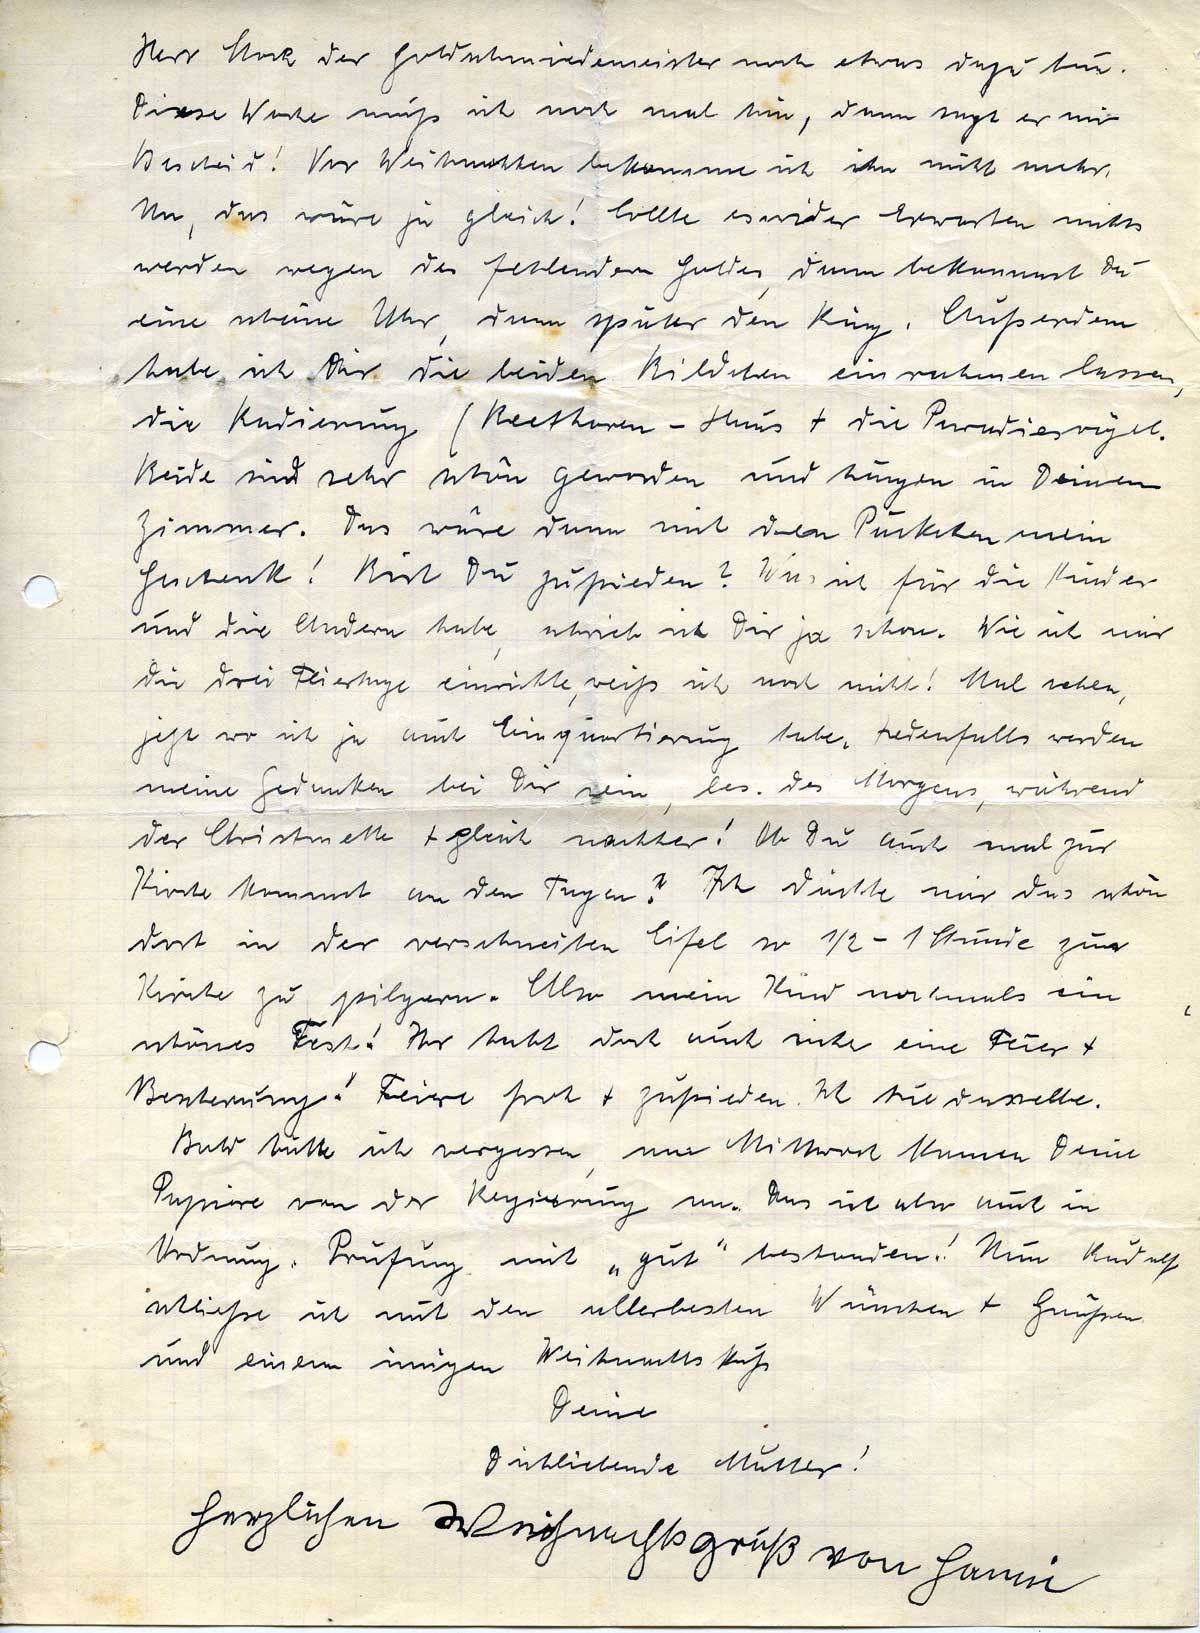 Herr Stock der Goldschmiedemeister noch etwas dazu tun.
Diese Woche muß ich noch mal hin, dann sagt er mir
Bescheid! Vor Weihnachten bekomme ich ihn nicht mehr.
Na, das wäre ja gleich! Sollte es wider Erwarten nichts
werden wegen des fehlenden Goldes, dann bekommst Du
eine schöne Uhr, dann später den Ring. Außerdem
habe ich Dir die beiden Bildchen einrahmen lassen,
die Radierung (Beethoven-Haus + die Paradiesvögel.
Beide sind sehr schön geworden und hängen in Deinem
Zimmer. Das wäre dann mit den Päckchen mein
Geschenk! Bist Du zufrieden? Was ich für die Kinder
und die Andern habe, schrieb ich Dir ja schon. Wie ich mir
die drei Feiertage einrichte, weiß ich noch nicht! Mal sehen,
jetzt wo ich ja auch Einquartierung habe. Jedenfalls werden
meine Gedanken bei Dir sein, bes. des Morgens, während
der Christmette + gleich nachher! Ob Du auch mal zur
Kirche kommst an den Tagen? Ich dächte mir das schön
dort in der verschneiten Eifel so 1/2 - 1 Stunde zur
Kirche zu pilgern. Also mein Kind nochmals ein
schönes Fest! Ihr habt doch auch sicher eine Feier +
Bescherung! Feiere froh + zufrieden. Ich tue dasselbe.
Bald hätte ich vergessen, am Mittwoch kamen Deine
Papiere von der Regierung an. Das ist also auch in
Ordnung. Prüfung mit „gut“ bestanden! Nun Rudolf
schließe ich mit den allerbesten Wünschen + Grüßen
und einem innigen Weihnachtskuß
Deine
Dichliebende Mutter!
Herzlichen Weihnachtsgruß von Hanni